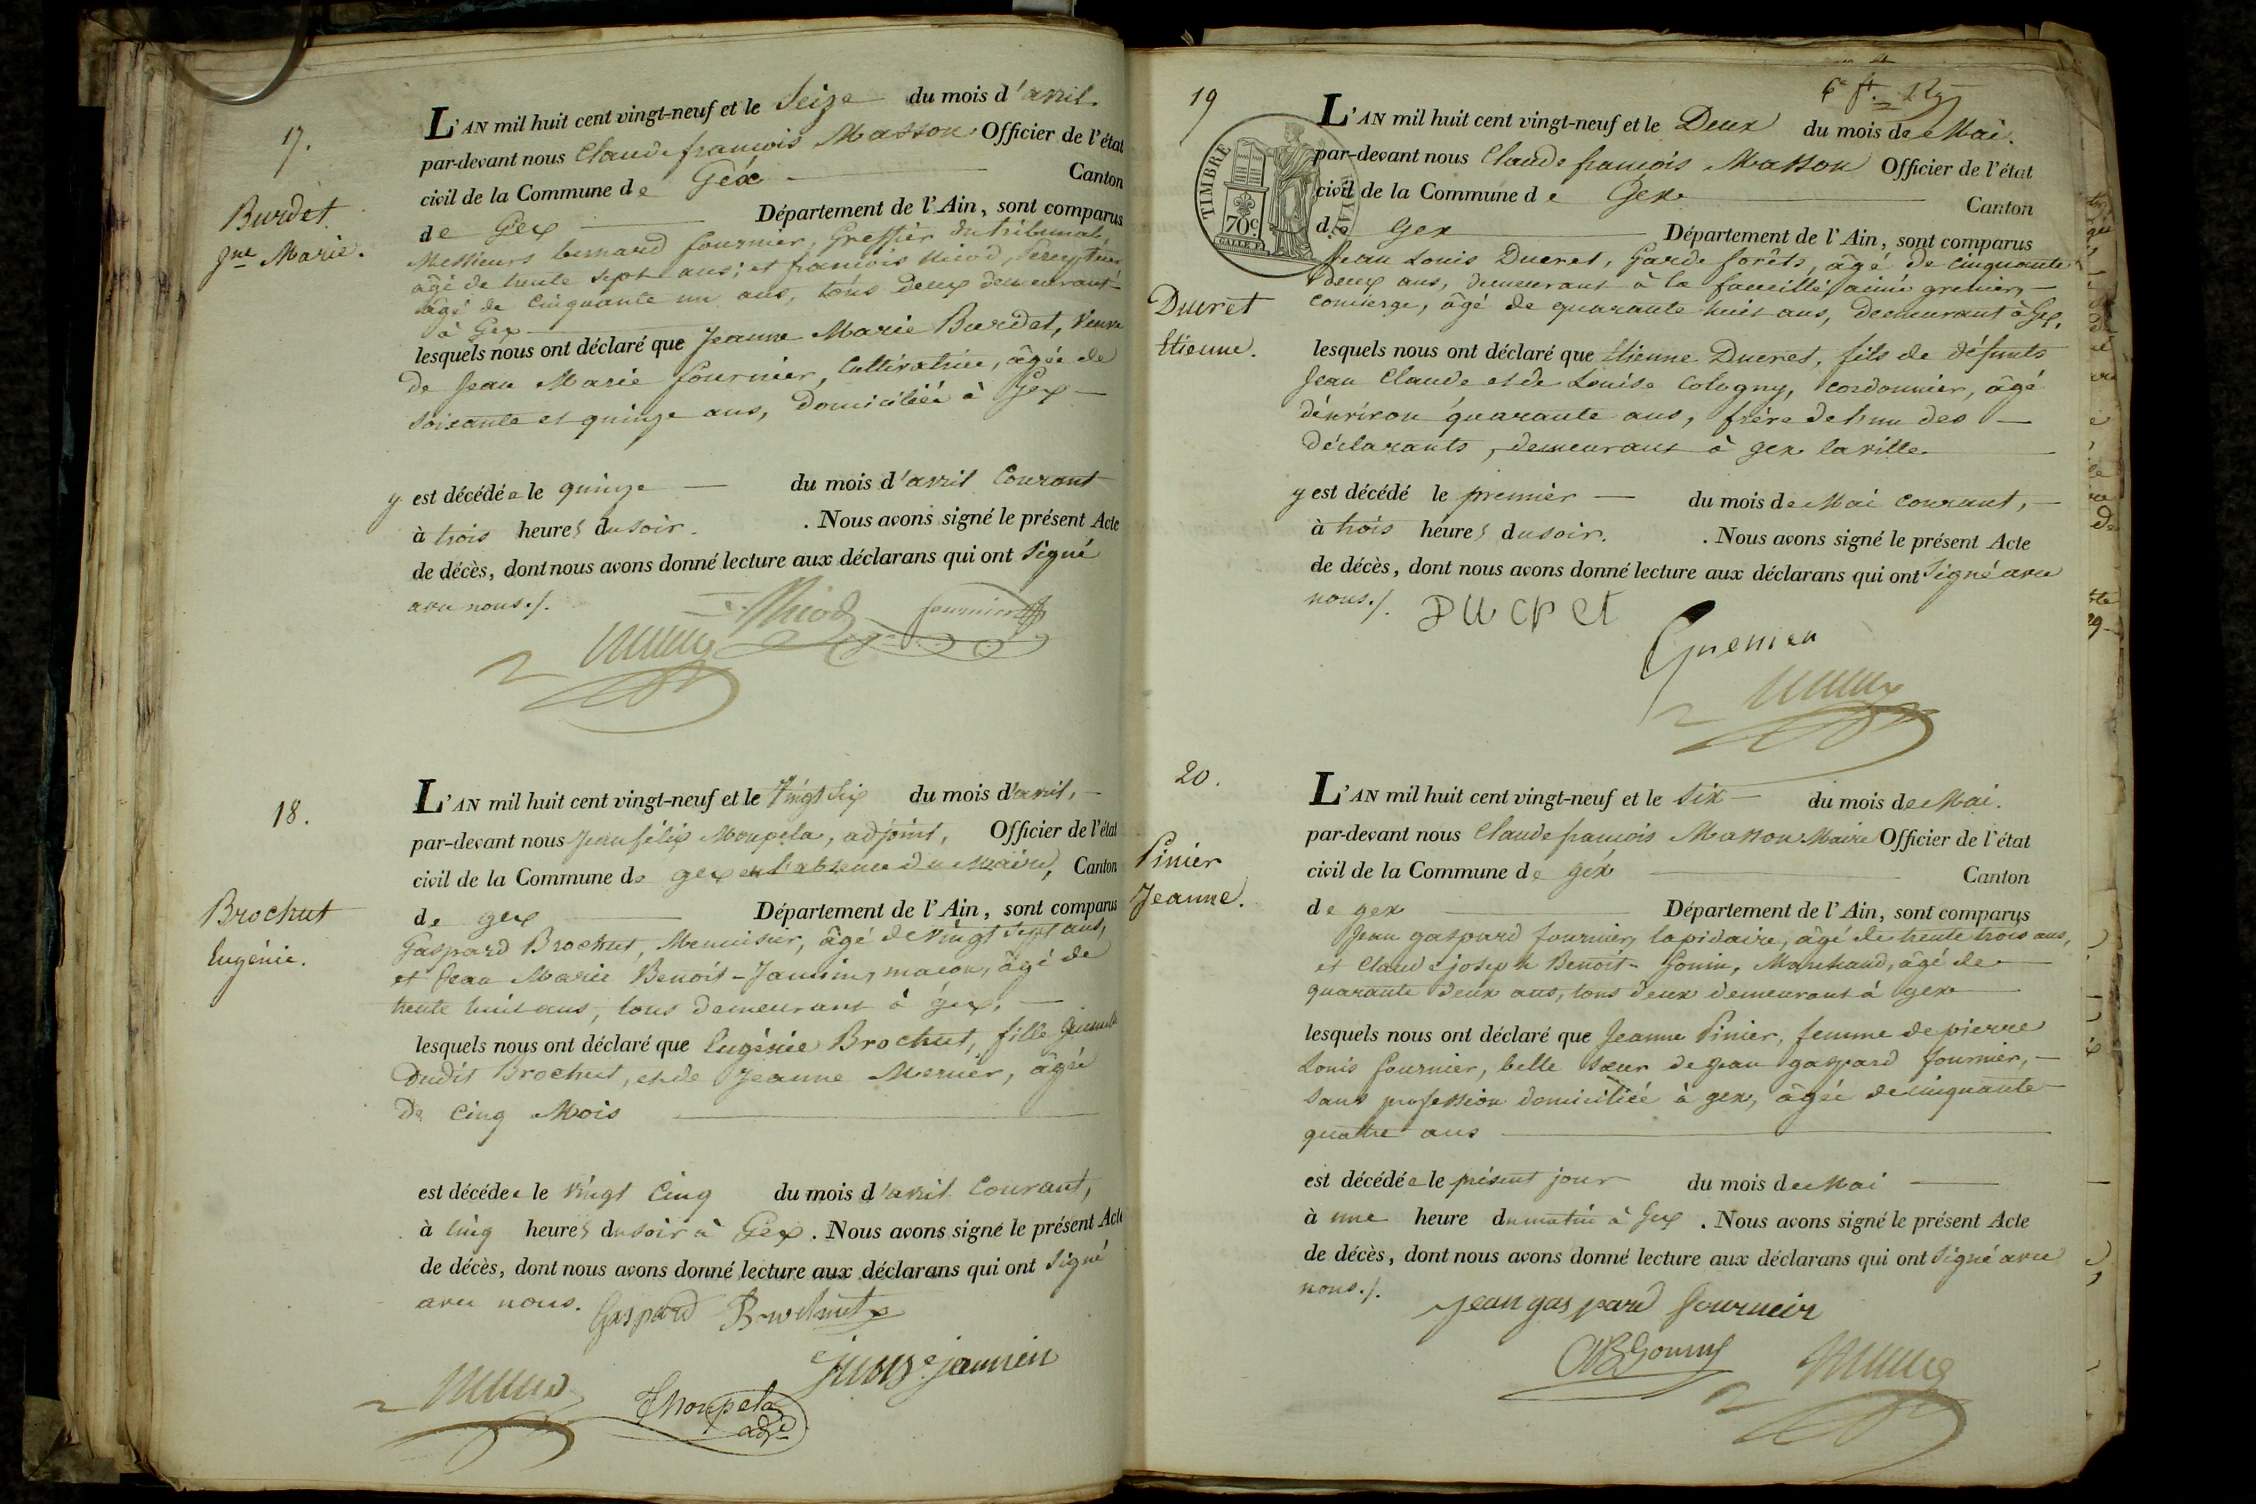 17.
Burdet
Jne Marie.
L'AN mil huit cent vingt-neuf et le Seize du mois d'avril.
par-devant nous Claude françois Masson Officier de l'état
civil de la Commune de Géx Canton
de Gex Département de l'Ain, sont comparus
Messieurs bernard fournier, Greffier du tribunal,
âgé de trente sept ans; et françois Nicod,
âgé de Cinquante un ans, tous deux demeurant
à Gex
lesquels nous ont déclaré que Jeanne Marie Burdet, Veuve
de Jean Marie fournier, Cultivatrice, âgée de
soixante et quinze ans, domiciliée à Gex
y est décédée le quinze du mois d'avril Courant
à trois heures du soir. . Nous avons signé le présent Acte
de décès, dont nous avons donné lecture aux déclarans qui ont Signé
avec nous./.
Nicod fournier
18.
Brochut
Eugénie.
L'AN mil huit cent vingt-neuf et le Vingt Six du mois d'avril,
par-devant nous Jean félix Moupela, adjoint, Officier de l'état
civil de la Commune de gex en l'absence du Maire, Canton
de gex Département de l'Ain, sont comparus
Gaspard Brochut, Menuisier, âgé de Vingt Sept ans,
et Jean Marie Benoit-Jannin, maçon, âgé de
trente huit ans, tous demeurant à gex,
lesquels nous ont déclaré que Eugénie Brochut, fille
Dudit Brochut, et de Jeanne Mernier, âgée
De Cinq Mois
est décédée le Vingt Cinq du mois d'avril Courant,
à Cinq heures du soir à Gex. Nous avons signé le présent Acte
de décès, dont nous avons donné lecture aux déclarans qui ont Signé
avec nous. Gaspard Brochut
jannin
Moupela
adjt
19
TIMBRE ROYAL
70c.
Ducret
Etienne.
L'AN mil huit cent vingt-neuf et le Deux du mois de Mai.
par-devant nous Claude françois Masson Officier de l'état
civil de la Commune de Gex Canton
de Gex Département de l'Ain, sont comparus
Jean Louis Ducret, Garde forêts, âgé de Cinquante
deux ans, demeurant à la faucille, aimé grenier,
Concierge, âgé de quarante huit ans, demeurant à Gex.
lesquels nous ont déclaré que Etienne Ducret, fils de défunts
Jean Claude et de Louise Cologny, Cordonnier, âgé
d'environ quarante ans, frère de l'un des
déclarants, demeurant à gex la ville
y est décédé le premier du mois de Mai Courant,
à trois heures du soir. . Nous avons signé le présent Acte
de décès, dont nous avons donné lecture aux déclarans qui ont Signé avec
nous./. DUCRET
Grenier
20.
Pinier
Jeanne.
L'AN mil huit cent vingt-neuf et le Six du mois de Mai.
par-devant nous Claude françois Masson Maire Officier de l'état
civil de la Commune de gex Canton
de gex Département de l'Ain, sont comparus
Jean gaspard fournier, lapidaire, âgé de trente trois ans,
et Claude joseph Benoit-Gonin, Marchand, âgé de
quarante deux ans, tous deux demeurant à gex
lesquels nous ont déclaré que Jeanne Pinier, femme de pierre
Louis fournier, belle sœur de Jean gaspard fournier,
Sans profession domiciliée à gex, âgée de cinquante
quatre ans
est décédée le présent jour du mois de Mai
à une heure du matin à Gex . Nous avons signé le présent Acte
de décès, dont nous avons donné lecture aux déclarans qui ont Signé avec
nous./.
jean gaspard fourneir